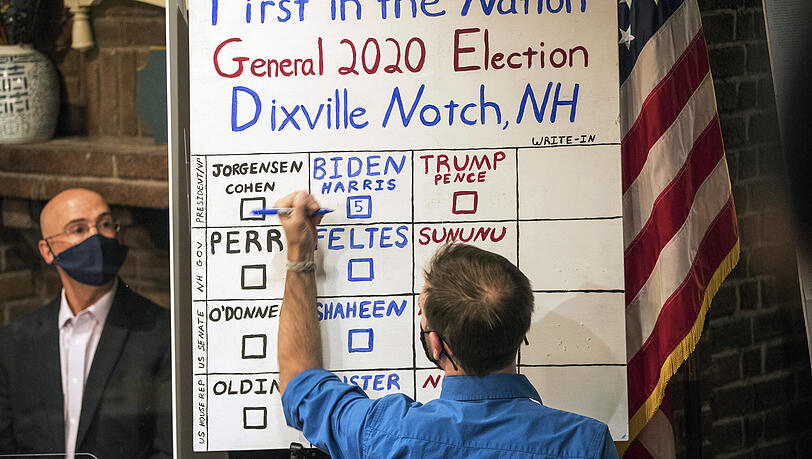 First in the Nation
General 2020 Election
Dixville Notch, NH
WRITE-IN
PRESIDENT/VP
JORGENSEN
COHEN
BIDEN
HARRIS
5
TRUMP
PENCE
NH GOV
PERR
FELTES
SUNUNU
US SENATE
O'DONNE
SHAHEEN
US HOUSE REP
OLDIN
STER